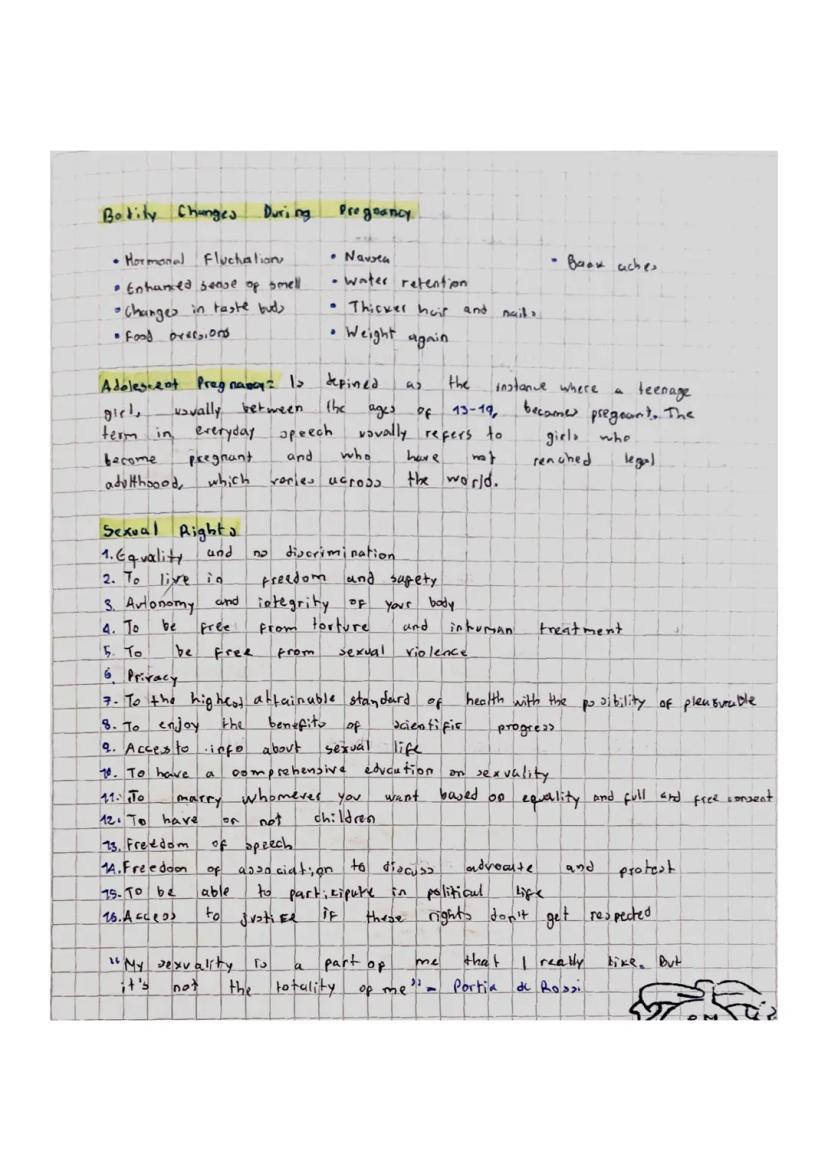 Bodily Changes During Pregnancy
• Hormonal Fluctuations • Nausea • Back aches
• Enhanced sense of smell • Water retention
• Changes in taste buds • Thicker hair and nails
• Food aversions • Weight again
Adolescent Pregnancy: Is defined as the instance where a teenage
girl, usually between the ages of 13-19, becomes pregnant. The
term in everyday speech usually refers to girls who
become pregnant and who have not reached legal
adulthood, which varies across the world.
Sexual Rights
1. Equality and no discrimination
2. To live in freedom and safety
3. Autonomy and integrity of your body
4. To be free from torture and inhuman treatment
5. To be free from sexual violence
6. Privacy
7. To the highest attainable standard of health with the posibility of pleasurable
8. To enjoy the benefits of scientific progress
9. Access to info about sexual life
10. To have a comprehensive education on sexuality
11. To marry whomever you want based on equality and full and free consent
12. To have or not children
13. Freedom of speech
14. Freedom of association to discuss advocate and protest
15. To be able to participate in political life
16. Access to justice if these rights don't get respected
"My sexuality is a part of me that I really like. But
it's not the totality of me" - Portia de Rossi